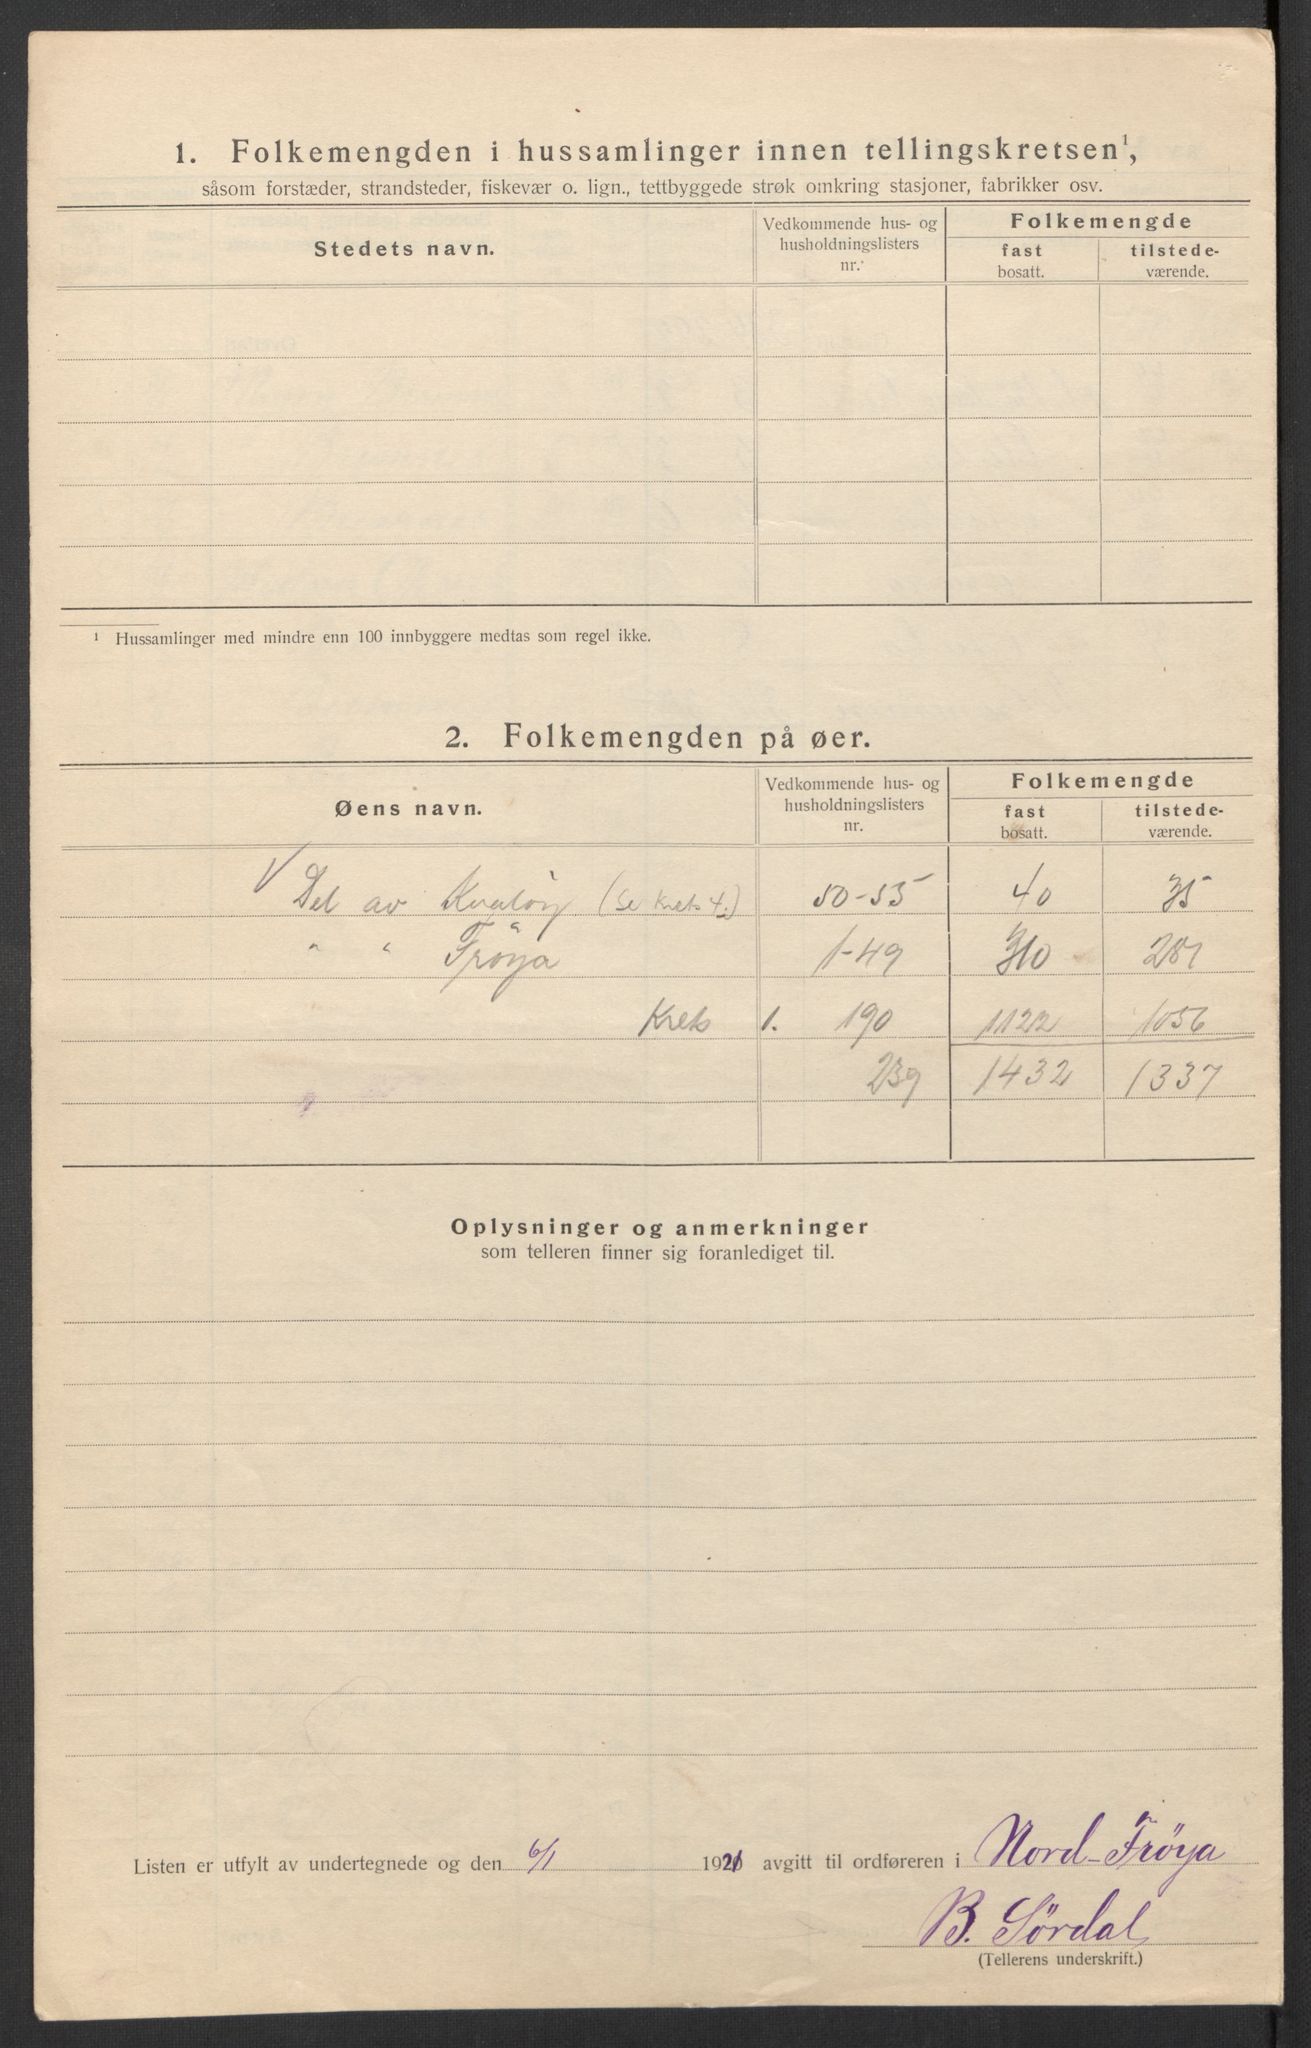 1. Folkemengden i hussamlinger innen tellingskretsen¹,
såsom forstæder, strandsteder, fiskevær o. lign., tettbyggede strøk omkring stasjoner, fabrikker osv.
Stedets navn.
Vedkommende hus- og husholdningslisters nr.
Folkemengde
fast bosatt.
tilstede-værende.
¹ Hussamlinger med mindre enn 100 innbyggere medtas som regel ikke.
2. Folkemengden på øer.
Øens navn.
Vedkommende hus- og husholdningslisters nr.
Folkemengde
fast bosatt.
tilstede-værende.
Del av (Se Krets 4.) 50-55 40 35
" " Frøya 1-49 310 281
Krets 1. 190 1122 1056
239 1432 1337
Oplysninger og anmerkninger
som telleren finner sig foranlediget til.
Listen er utfylt av undertegnede og den 6/1 1921 avgitt til ordføreren i Nord-Frøya
B. Sørdal
(Tellerens underskrift.)